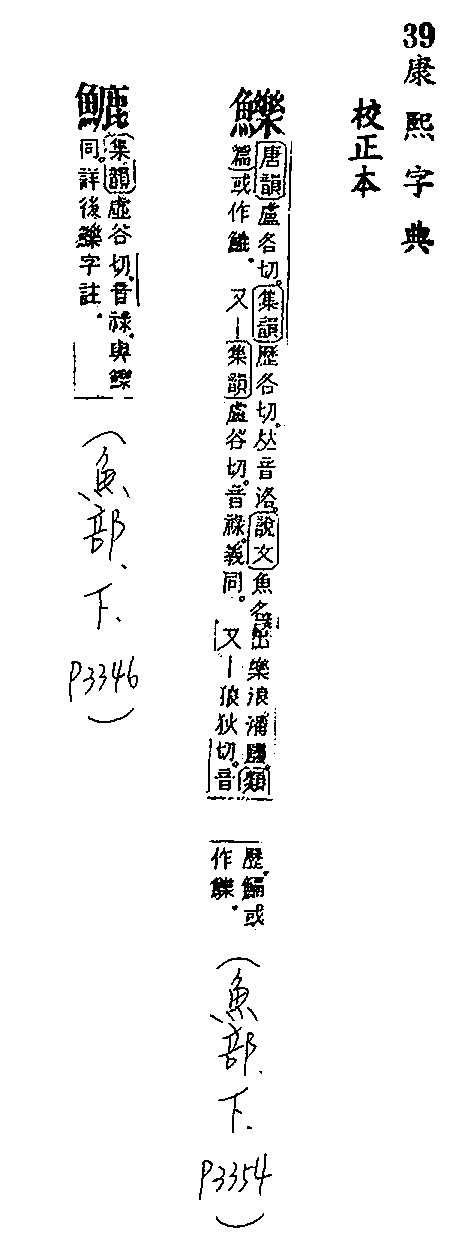 39
康熙字典
校正本
鱳
唐韻盧各切。集韻歷各切。𠀤音洛。說文魚名。出樂浪潘國。類
篇或作。又｜集韻盧谷切。音祿。義同。又｜狼狄切。音
歷。或
作鱳。
(魚部.下.
P3354)
集韻盧谷切。音祿。與鱳
同。詳後鱳字註。
(魚部.下.
P3346)